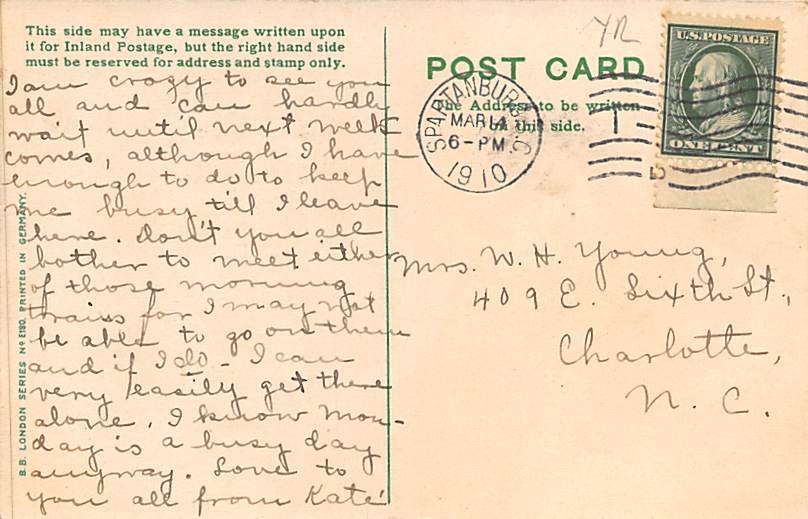 This side may have a message written upon
it for Inland Postage, but the right hand side
must be reserved for address and stamp only.
I am crazy to see you
all and can hardly
wait until next week
comes, although I have
enough to do to keep
me busy till I leave
here. Don't you all
bother to meet either
of those morning
trains for I may not
be able to go on them
and if I do - I can
very easily get there
alone. I know Mon-
day is a busy day
anyway. Love to
you all from Kate
B.B. LONDON SERIES Nº E190. PRINTED IN GERMANY.
YR
POST CARD
The Address to be written
on this side.
SPARTANBURG S.C.
MAR 14
6-PM
1910
U.S. POSTAGE
ONE CENT
Mrs. W. H. Young,
409 E. Sixth St.,
Charlotte,
N. C.